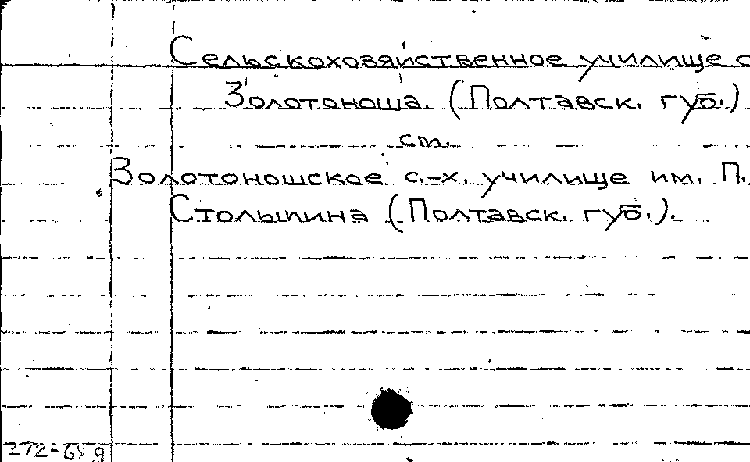 Сельскохозяйственное училище с
Золотоноша. (Полтавск. губ.)
см.
Золотоношское с.-х. училище им. П.
Столыпина (Полтавск. губ.).